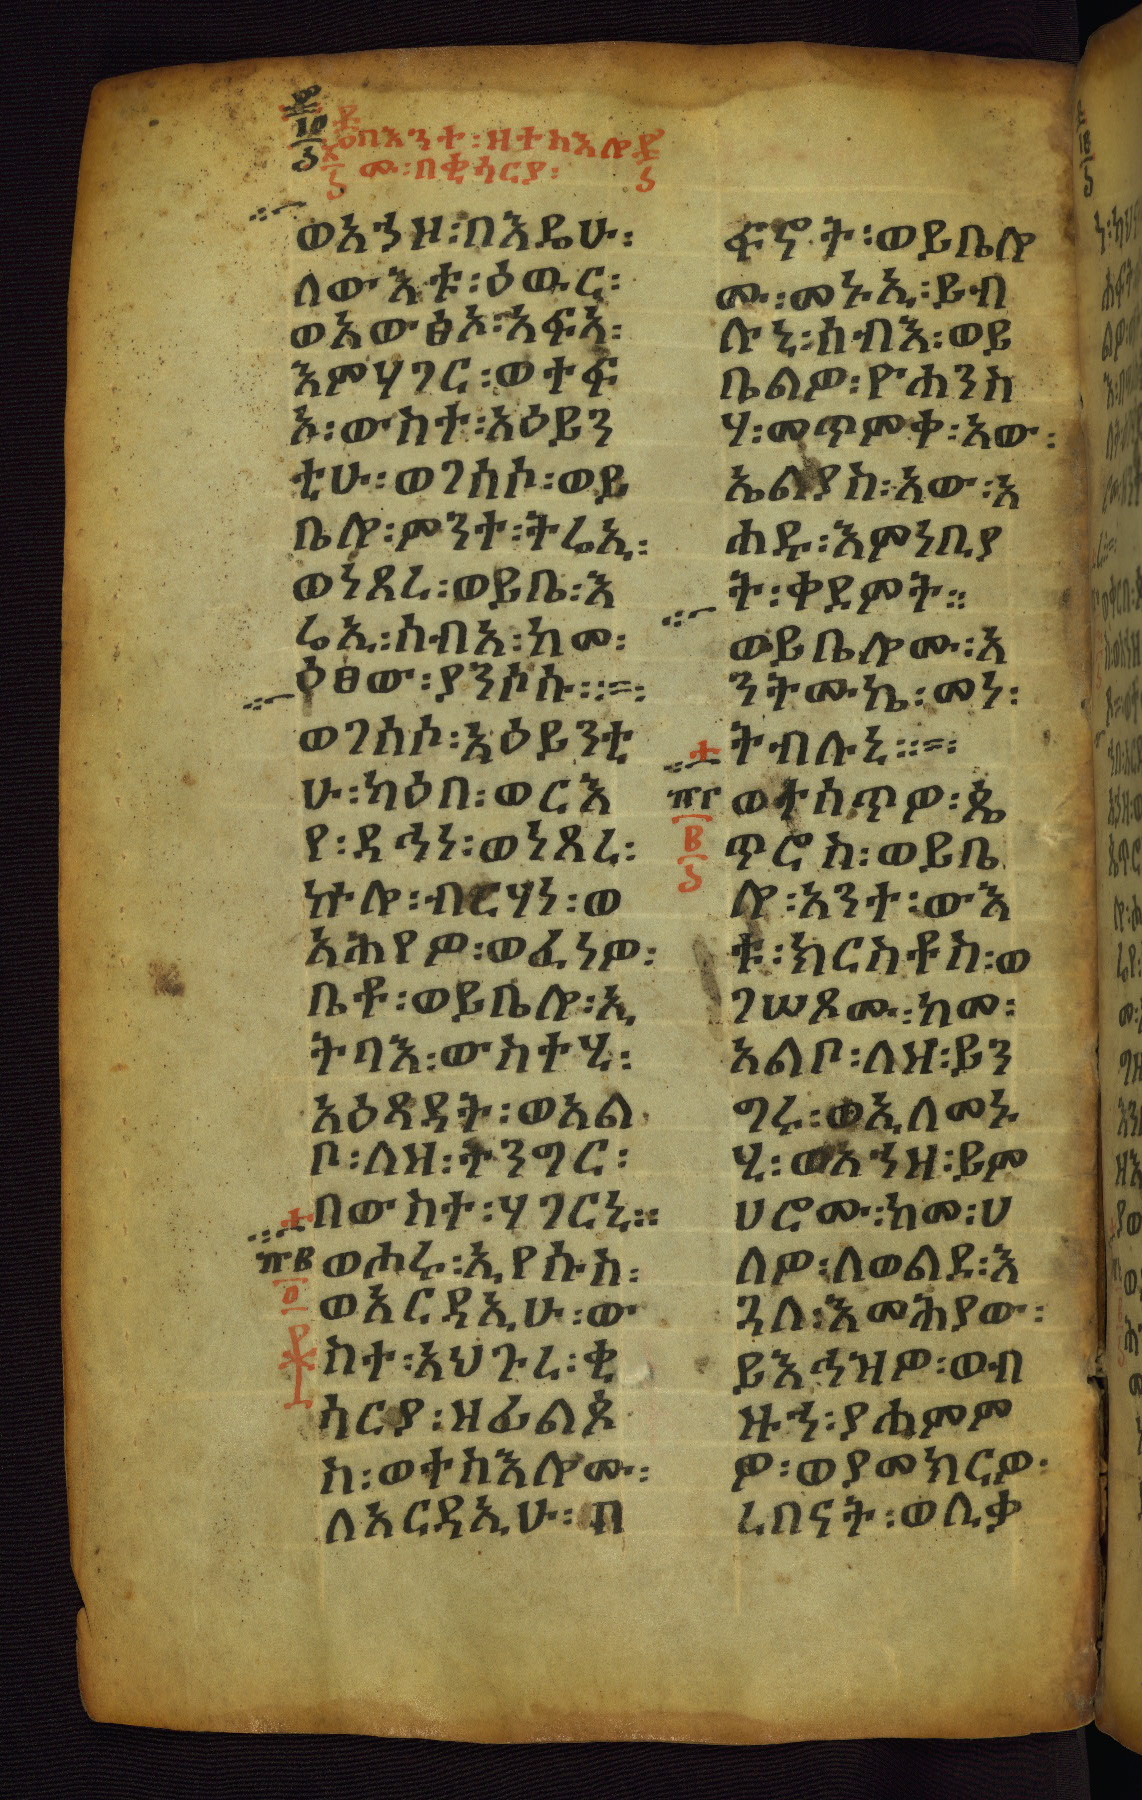 በእንተ፡ዘተስእሎ
ሙ፡በቂሳርያ፡
ወአኀዞ፡በእዴሁ፡
ለውእቱ፡ዕውር፡
ወአውፅኦ፡አፍአ፡
እምሃገር፡ወተፍ
አ፡ውስተ፡አዕይን
ቲሁ፡ወገሰሶ፡ወይ
ቤሎ፡ምንተ፡ትሬኢ፡
ወነጸረ፡ወይቤ፡እ
ሬኢ፡ሰብአ፡ከመ፡
ዕፀው፡ያንሶሱ፡፡=፡
ወገሰሶ፡አዕይንቲ
ሁ፡ካዕበ፡ወርእ
የ፡ዳኅነ፡ወነጸረ፡
ኵሎ፡ብርሃነ፡ወ
አሕየዎ፡ወፈነዎ፡
ቤቶ፡ወይቤሎ፡ኢ
ትባእ፡ውስተ፡ሃ፡
አዕጻዳት፡ወአል
ቦ፡ለዘ፡ትንግር፡
በውስተ፡ሃገርኒ።
ወሐሩ፡ኢየሱስ፡
ወአርዳኢሁ፡ው
ስተ፡አህጉረ፡ቂ
ሳርያ፡ዘፊልጶ
ስ፡ወተስእሎሙ፡
ለአርዳኢሁ፡በ
ፍኖት፡ወይቤሎ
ሙ፡መኑኢ፡ይብ
ሉኒ፡ሰብእ፡ወይ
ቤልዎ፡ዮሐንስ
ሃ፡መጥምቀ፡አው፡
ኤልያስ፡አው፡አ
ሐዱ፡እምነቢያ
ት፡ቀደምት።
ወይቤሎሙ፡አ
ንትሙኬ፡መነ፡
ትብሉኒ፡፡=፡
ወተሰጥዎ፡ጴ
ጥሮስ፡ወይቤ
ሎ፡አንተ፡ውእ
ቱ፡ክርስቶስ፡ወ
ገሠጾሙ፡ከመ፡
አልቦ፡ለዘ፡ይን
ግሩ፡ወኢለመኑ
ሂ፡ወአኀዘ፡ይም
ሀሮሙ፡ከመ፡ሀ
ለዎ፡ለወልደ፡እ
ጓለ፡እመሕያው፡
ይእኅዝዎ፡ወብ
ዙኀ፡ያሐምም
ዎ፡ወያመክርዎ፡
ረበናት፡ወሊቃ